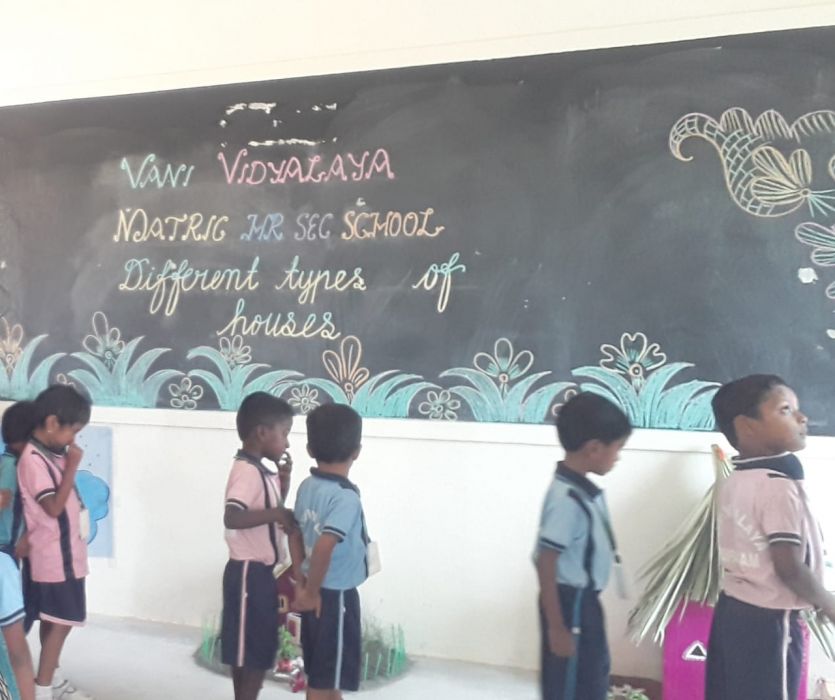 VANI VIDYALAYA
MATRIC HR SEC SCHOOL
Different types of
houses